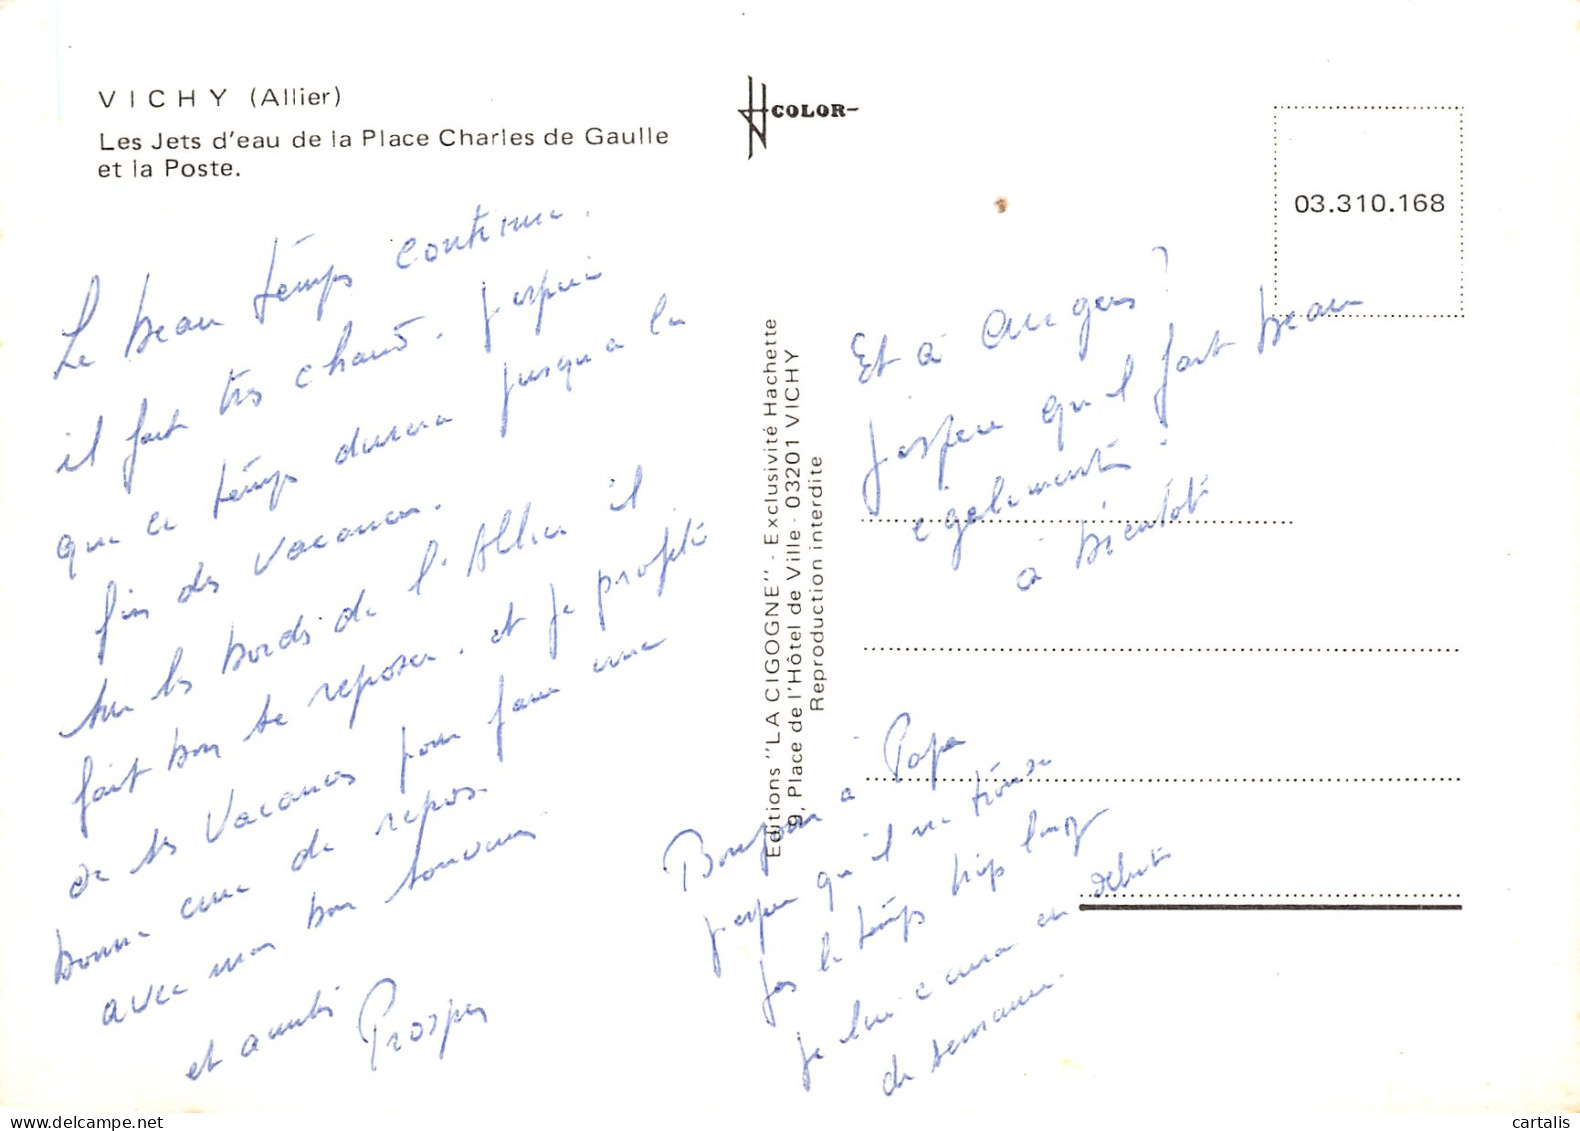 VICHY (Allier)
Les Jets d'eau de la Place Charles de Gaulle
et la Poste.
COLOR-
03.310.168
Le beau temps continue.
il fait très chaud. J'espère
que ce temps durera jusqu'a la
fin des vacances.
sur les bords de l'Allier il
fait bon se reposer. et je profite
de ses vacances pour faire une
bonne cure de repos.
avec mon bon souvenir
et amitiés
Prosper
Editions "LA CIGOGNE" - Exclusivité Hachette
9, Place de l'Hôtel de Ville - 03201 VICHY
Reproduction interdite
Et à Angers ?
J'espère qu'il fait beau
egalement.
à bientôt
Bonjour à Papa
J'espère qu'il ne trouve
pas le temps trop long
je lui écrirai en début
de semaine.
cartalis